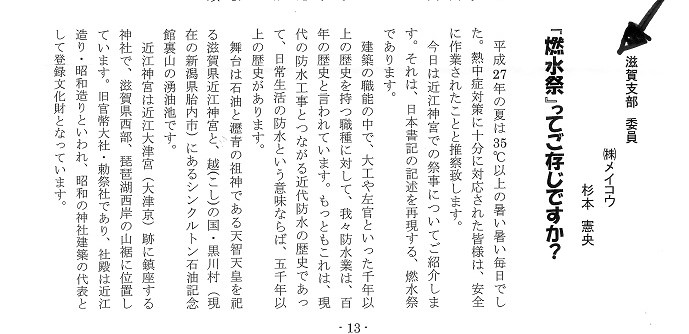 滋賀支部 委員
㈱メイコウ
杉本 憲央
『燃水祭』ってご存じですか?
平成27年の夏は35℃以上の暑い暑い毎日でし
た。熱中症対策に十分に対応された皆様は、安全
に作業されたことと推察致します。
今日は近江神宮での祭事についてご紹介しま
す。それは、日本書記の記述を再現する、燃水祭
であります。
建築の職能の中で、大工や左官といった千年以
上の歴史を持つ職種に対して、我々防水業は、百
年の歴史と言われています。もっともこれは、現
代の防水工事とつながる近代防水の歴史であっ
て、日常生活の防水という意味ならば、五千年以
上の歴史があります。
舞台は石油と瀝青の祖神である天智天皇を祀
る滋賀県近江神宮と、越(こし)の国・黒川村(現
在の新潟県胎内市)にあるシンクルトン石油記念
館裏山の湧油池です。
近江神宮は近江大津宮(大津京)跡に鎮座する
神社で、滋賀県西部、琵琶湖西岸の山裾に位置し
ています。旧官幣大社・勅祭社であり、社殿は近江
造り・昭和造りといわれ、昭和の神社建築の代表と
して登録文化財となっています。
- 13 -